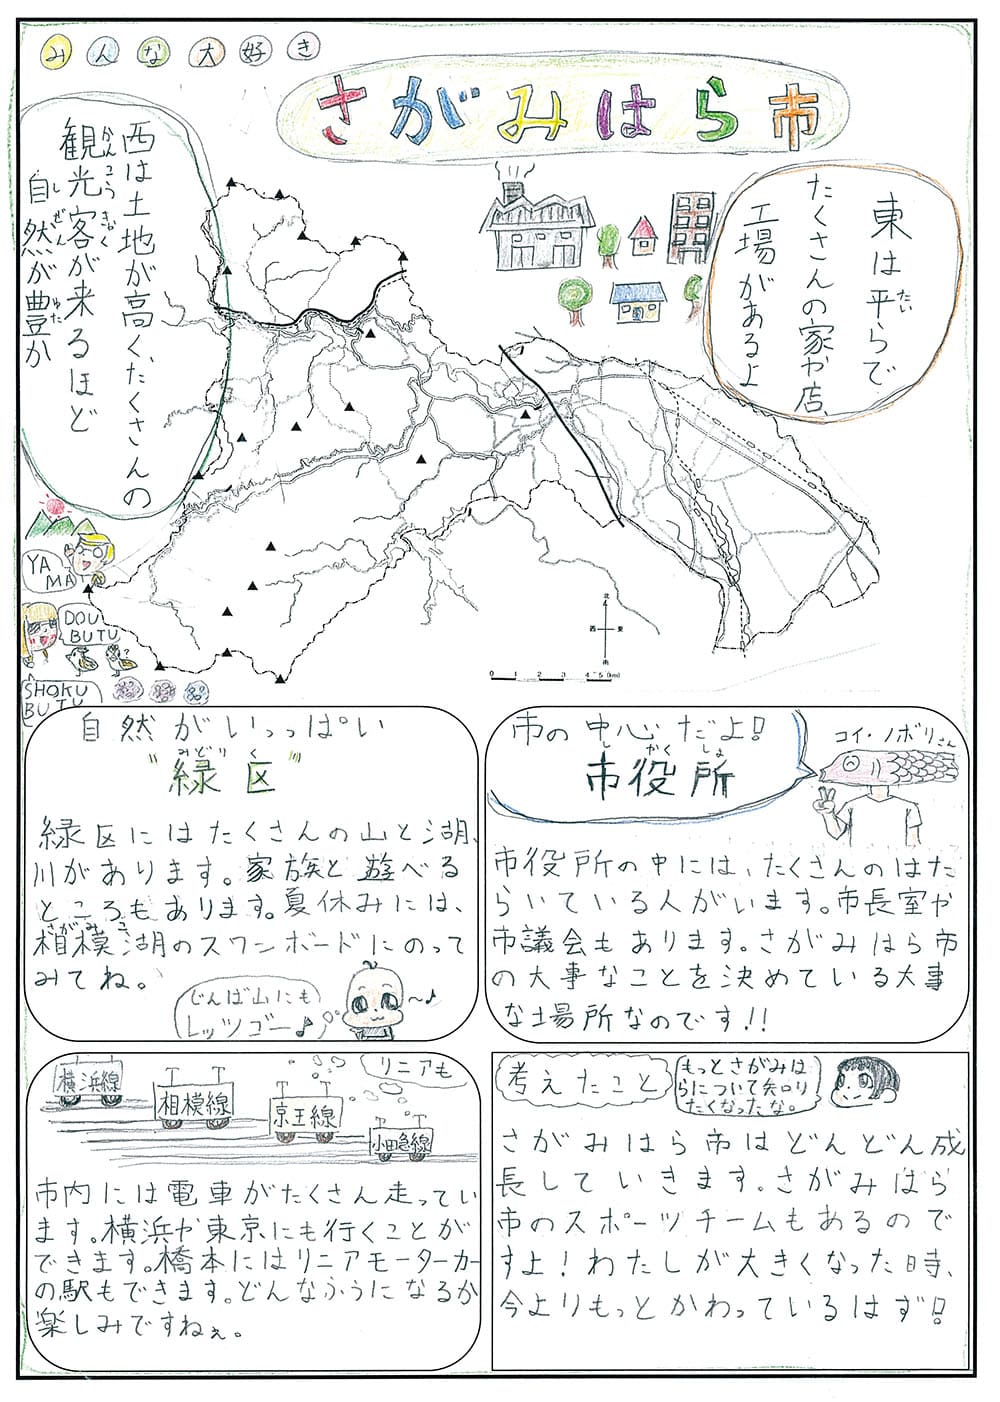 みんな大好き
さがみはら市
東は平らで
たくさんの家や店、
工場があるよ
西は土地が高く、たくさんの
観光客が来るほど
自然が豊か
YA
MA
DOU
BUTU
SHOKU
BUTU
北
西 東
南
0 1 2 3 4 5(km)
自然がいっっぱい
"緑区"
緑区にはたくさんの山と湖、
川があります。家族と遊べる
ところもあります。夏休みには、
相模湖のスワンボードにのって
みてね。
じんば山にも
レッツゴー♪
～♪
市の中心だよ!
市役所
コイ・ノボリさん
市役所の中には、たくさんのはた
らいている人がいます。市長室や
市議会もあります。さがみはら市
の大事なことを決めている大事
な場所なのです!!
横浜線
相模線
京王線
小田急線
リニアも
市内には電車がたくさん走ってい
ます。横浜や東京にも行くことが
できます。橋本にはリニアモーターカー
の駅もできます。どんなふうになるか
楽しみですねぇ。
考えたこと
もっとさがみは
らについて知り
たくなったな。
さがみはら市はどんどん成
長していきます。さがみはら
市のスポーツチームもあるので
すよ!わたしが大きくなった時、
今よりもっとかわっているはず!